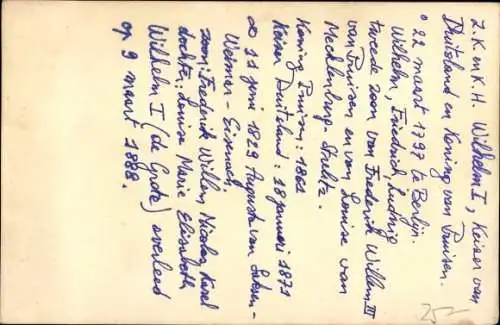 Z.K. en K.H. Wilhelm I, Keizer van
Duitsland en Koning van Pruisen.
° 22 maart 1797 te Berlijn.
Wilhelm, Friedrich, Ludwig
tweede zoon van Frederik Willem III
van Pruisen en van Louise van
Mecklenburg-Strelitz.
Koning Pruisen: 1861
Keizer Duitsland: 18 januari 1871
∞ 11 juni 1829 Augusta van Saksen-
Weimar-Eisenach.
zoon: Frederik Willem Nicolas Karel
dochter: Louise Marie Elisabeth
Wilhelm I (de Grote) overleed
op 9 maart 1888.
25-